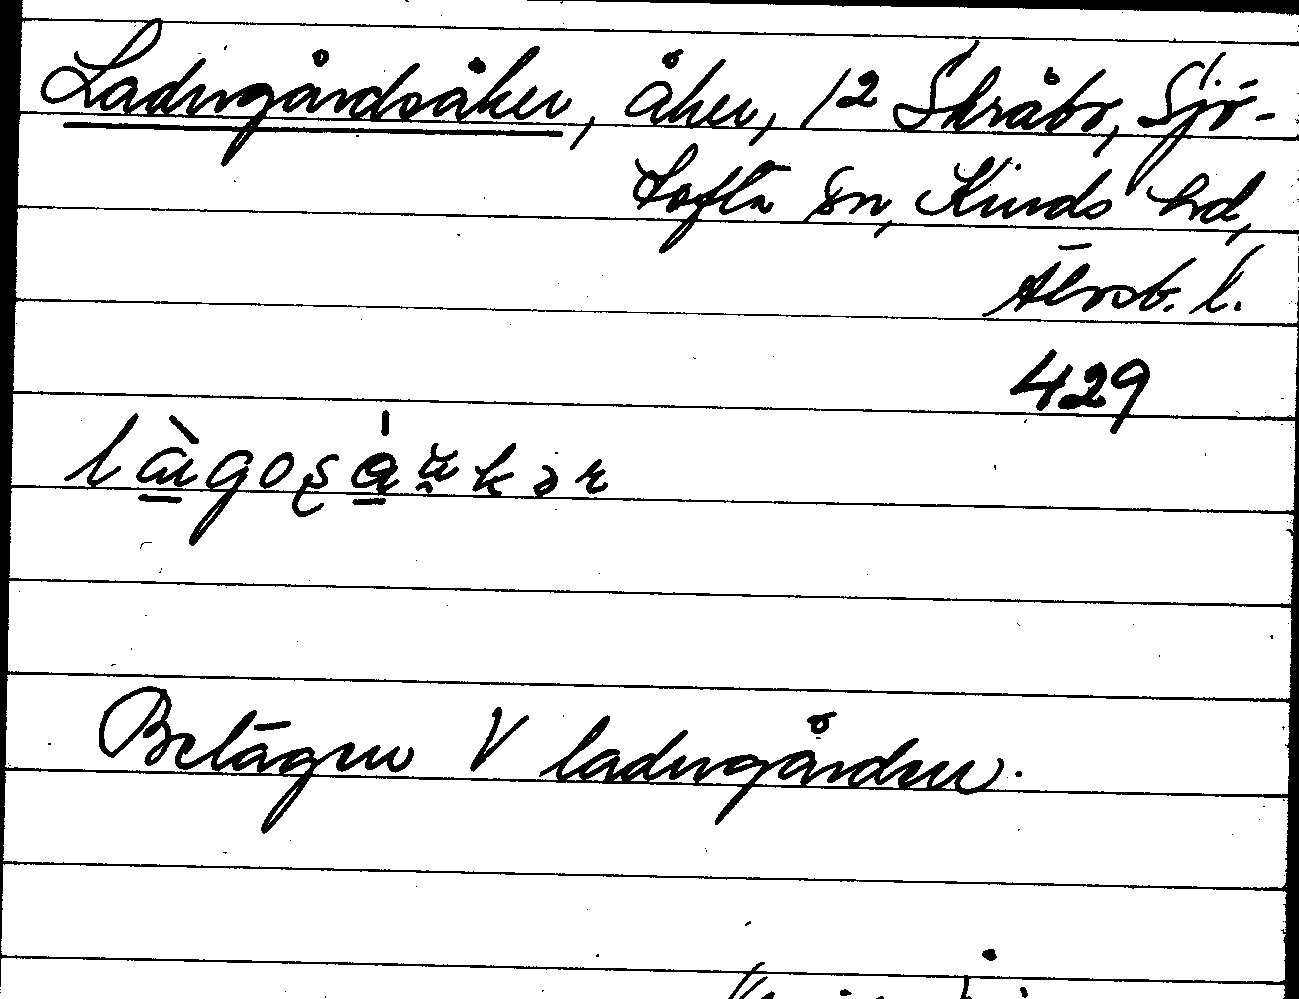 Ladugårdsåker, åker, 12 Skråbo, Sjö-
tofta sn, Kinds hd,
Älvsb. l.
429
Belägen V ladugården.